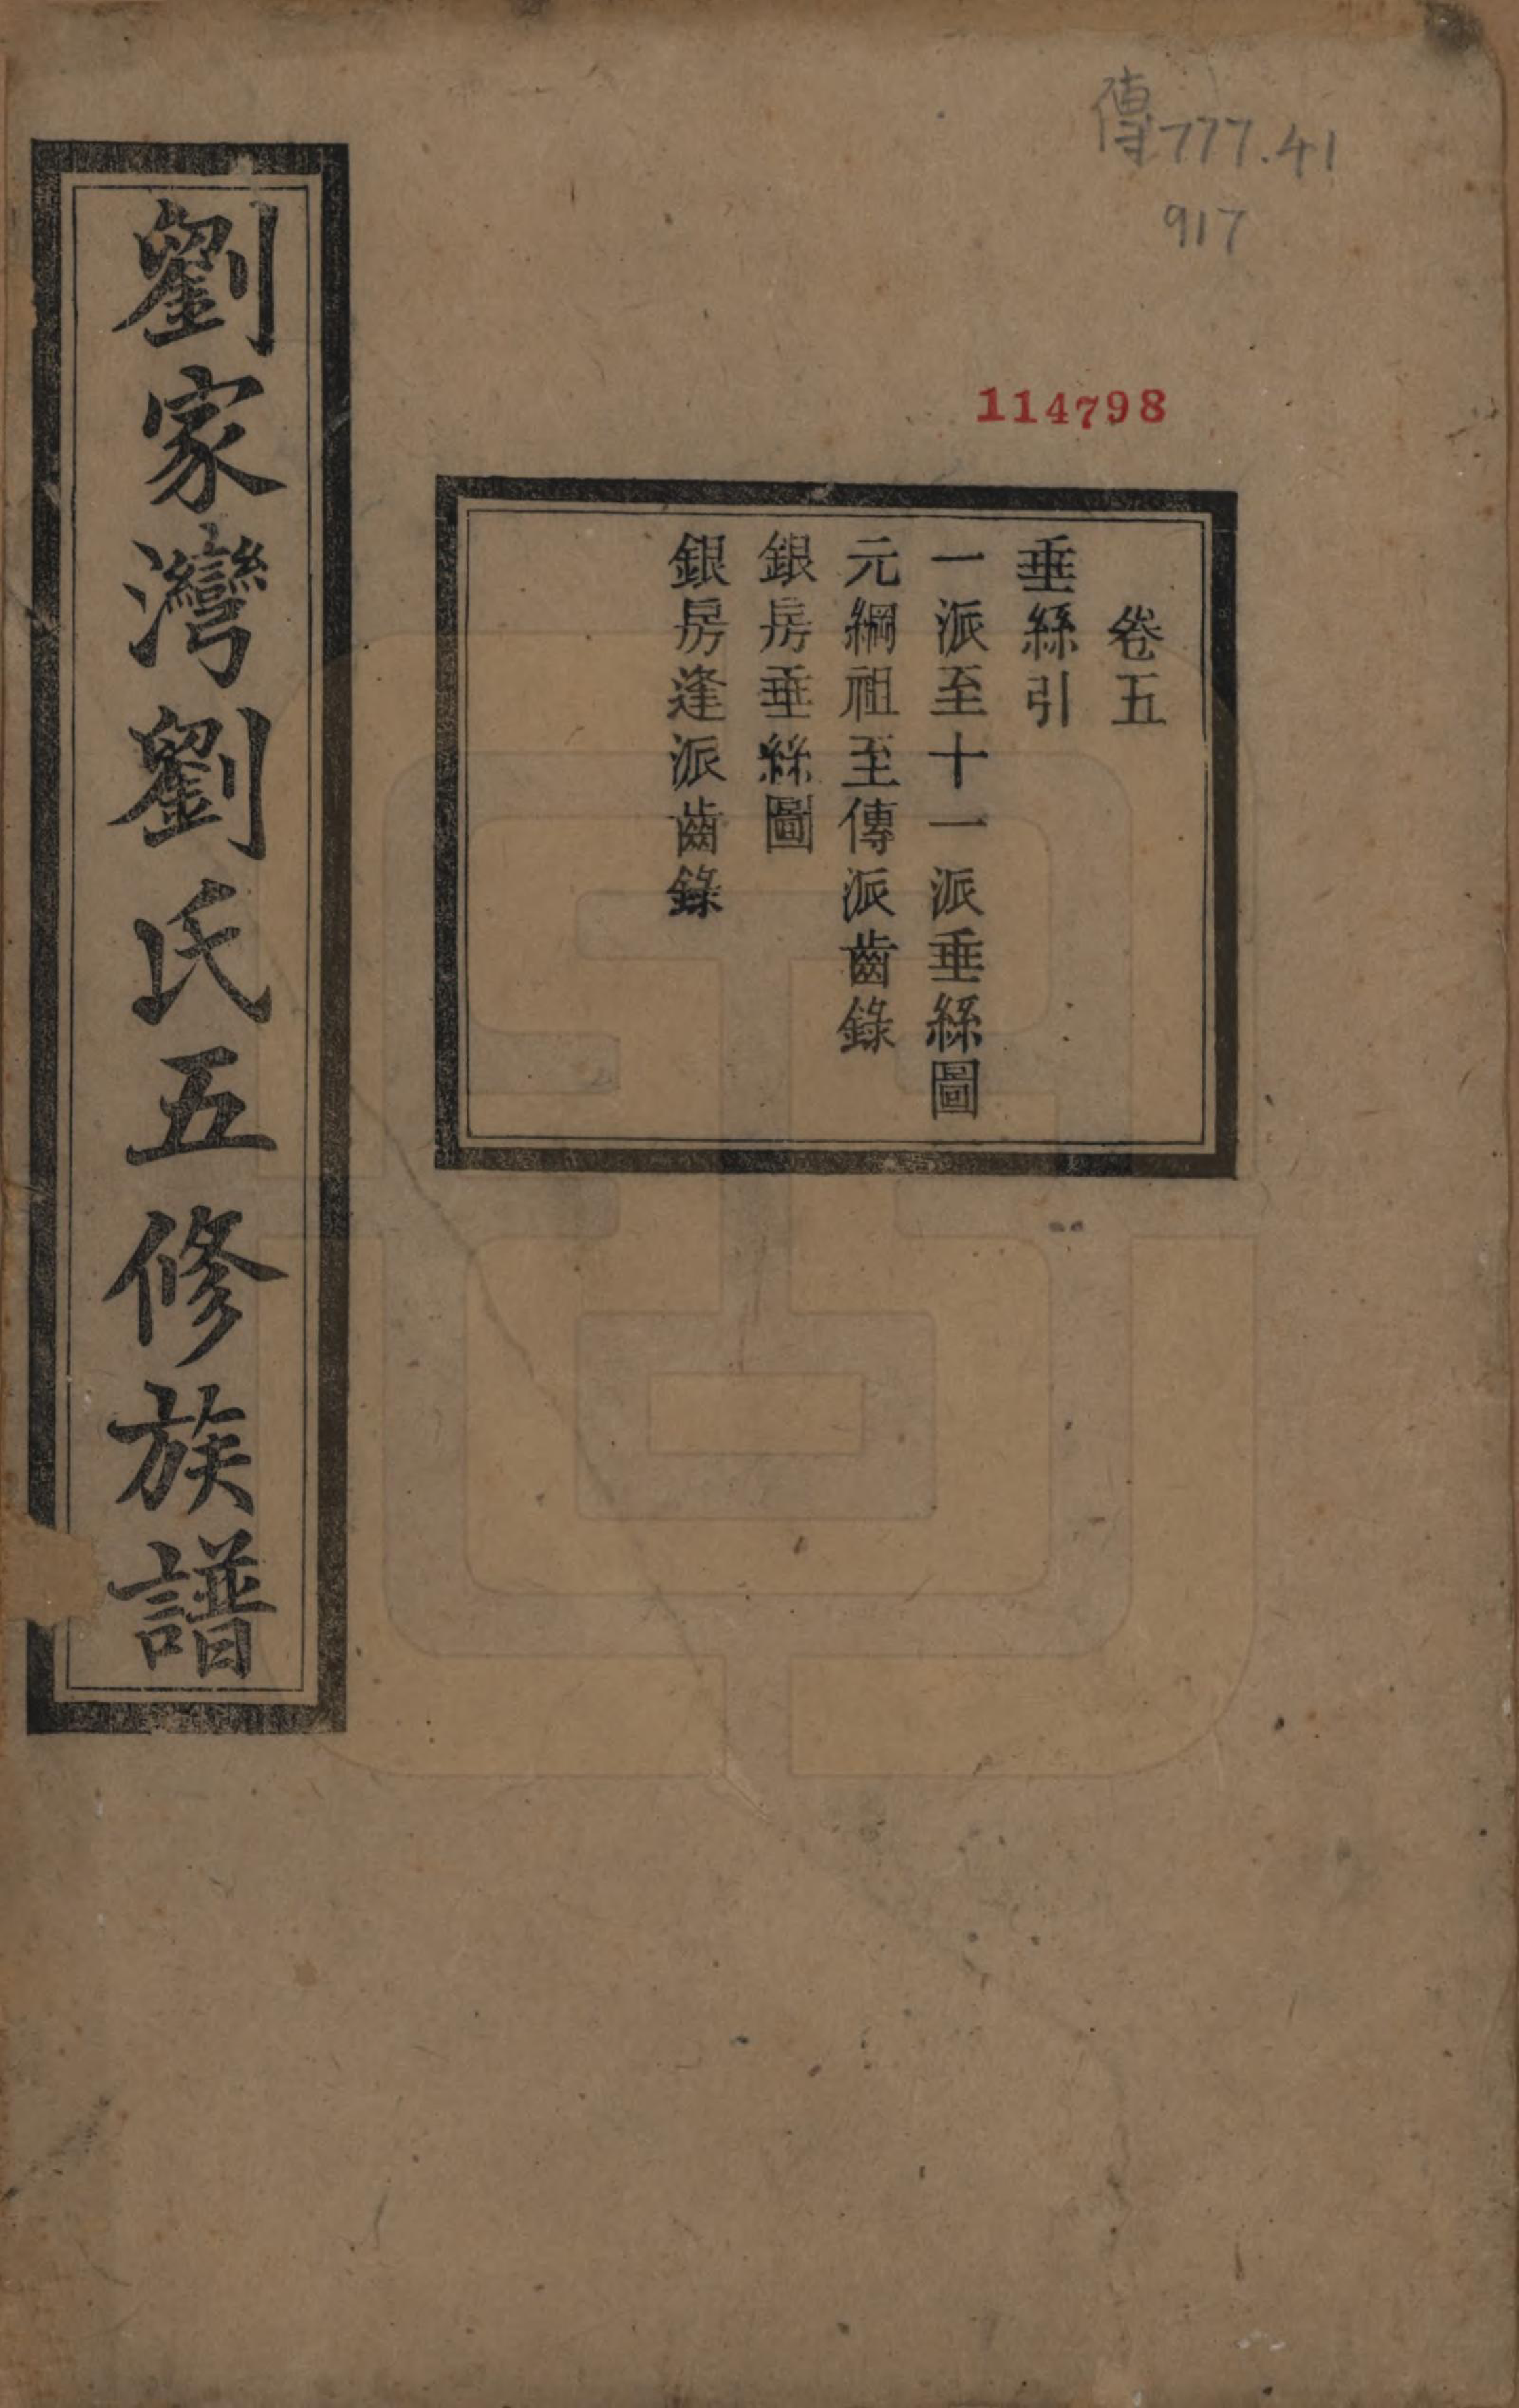 傳777.41
917
114798
卷五
垂絲引
一派至十一派垂絲圖
元綱祖至傳派齒錄
銀房垂絲圖
銀房逢派齒錄
劉家灣劉氏五修族譜